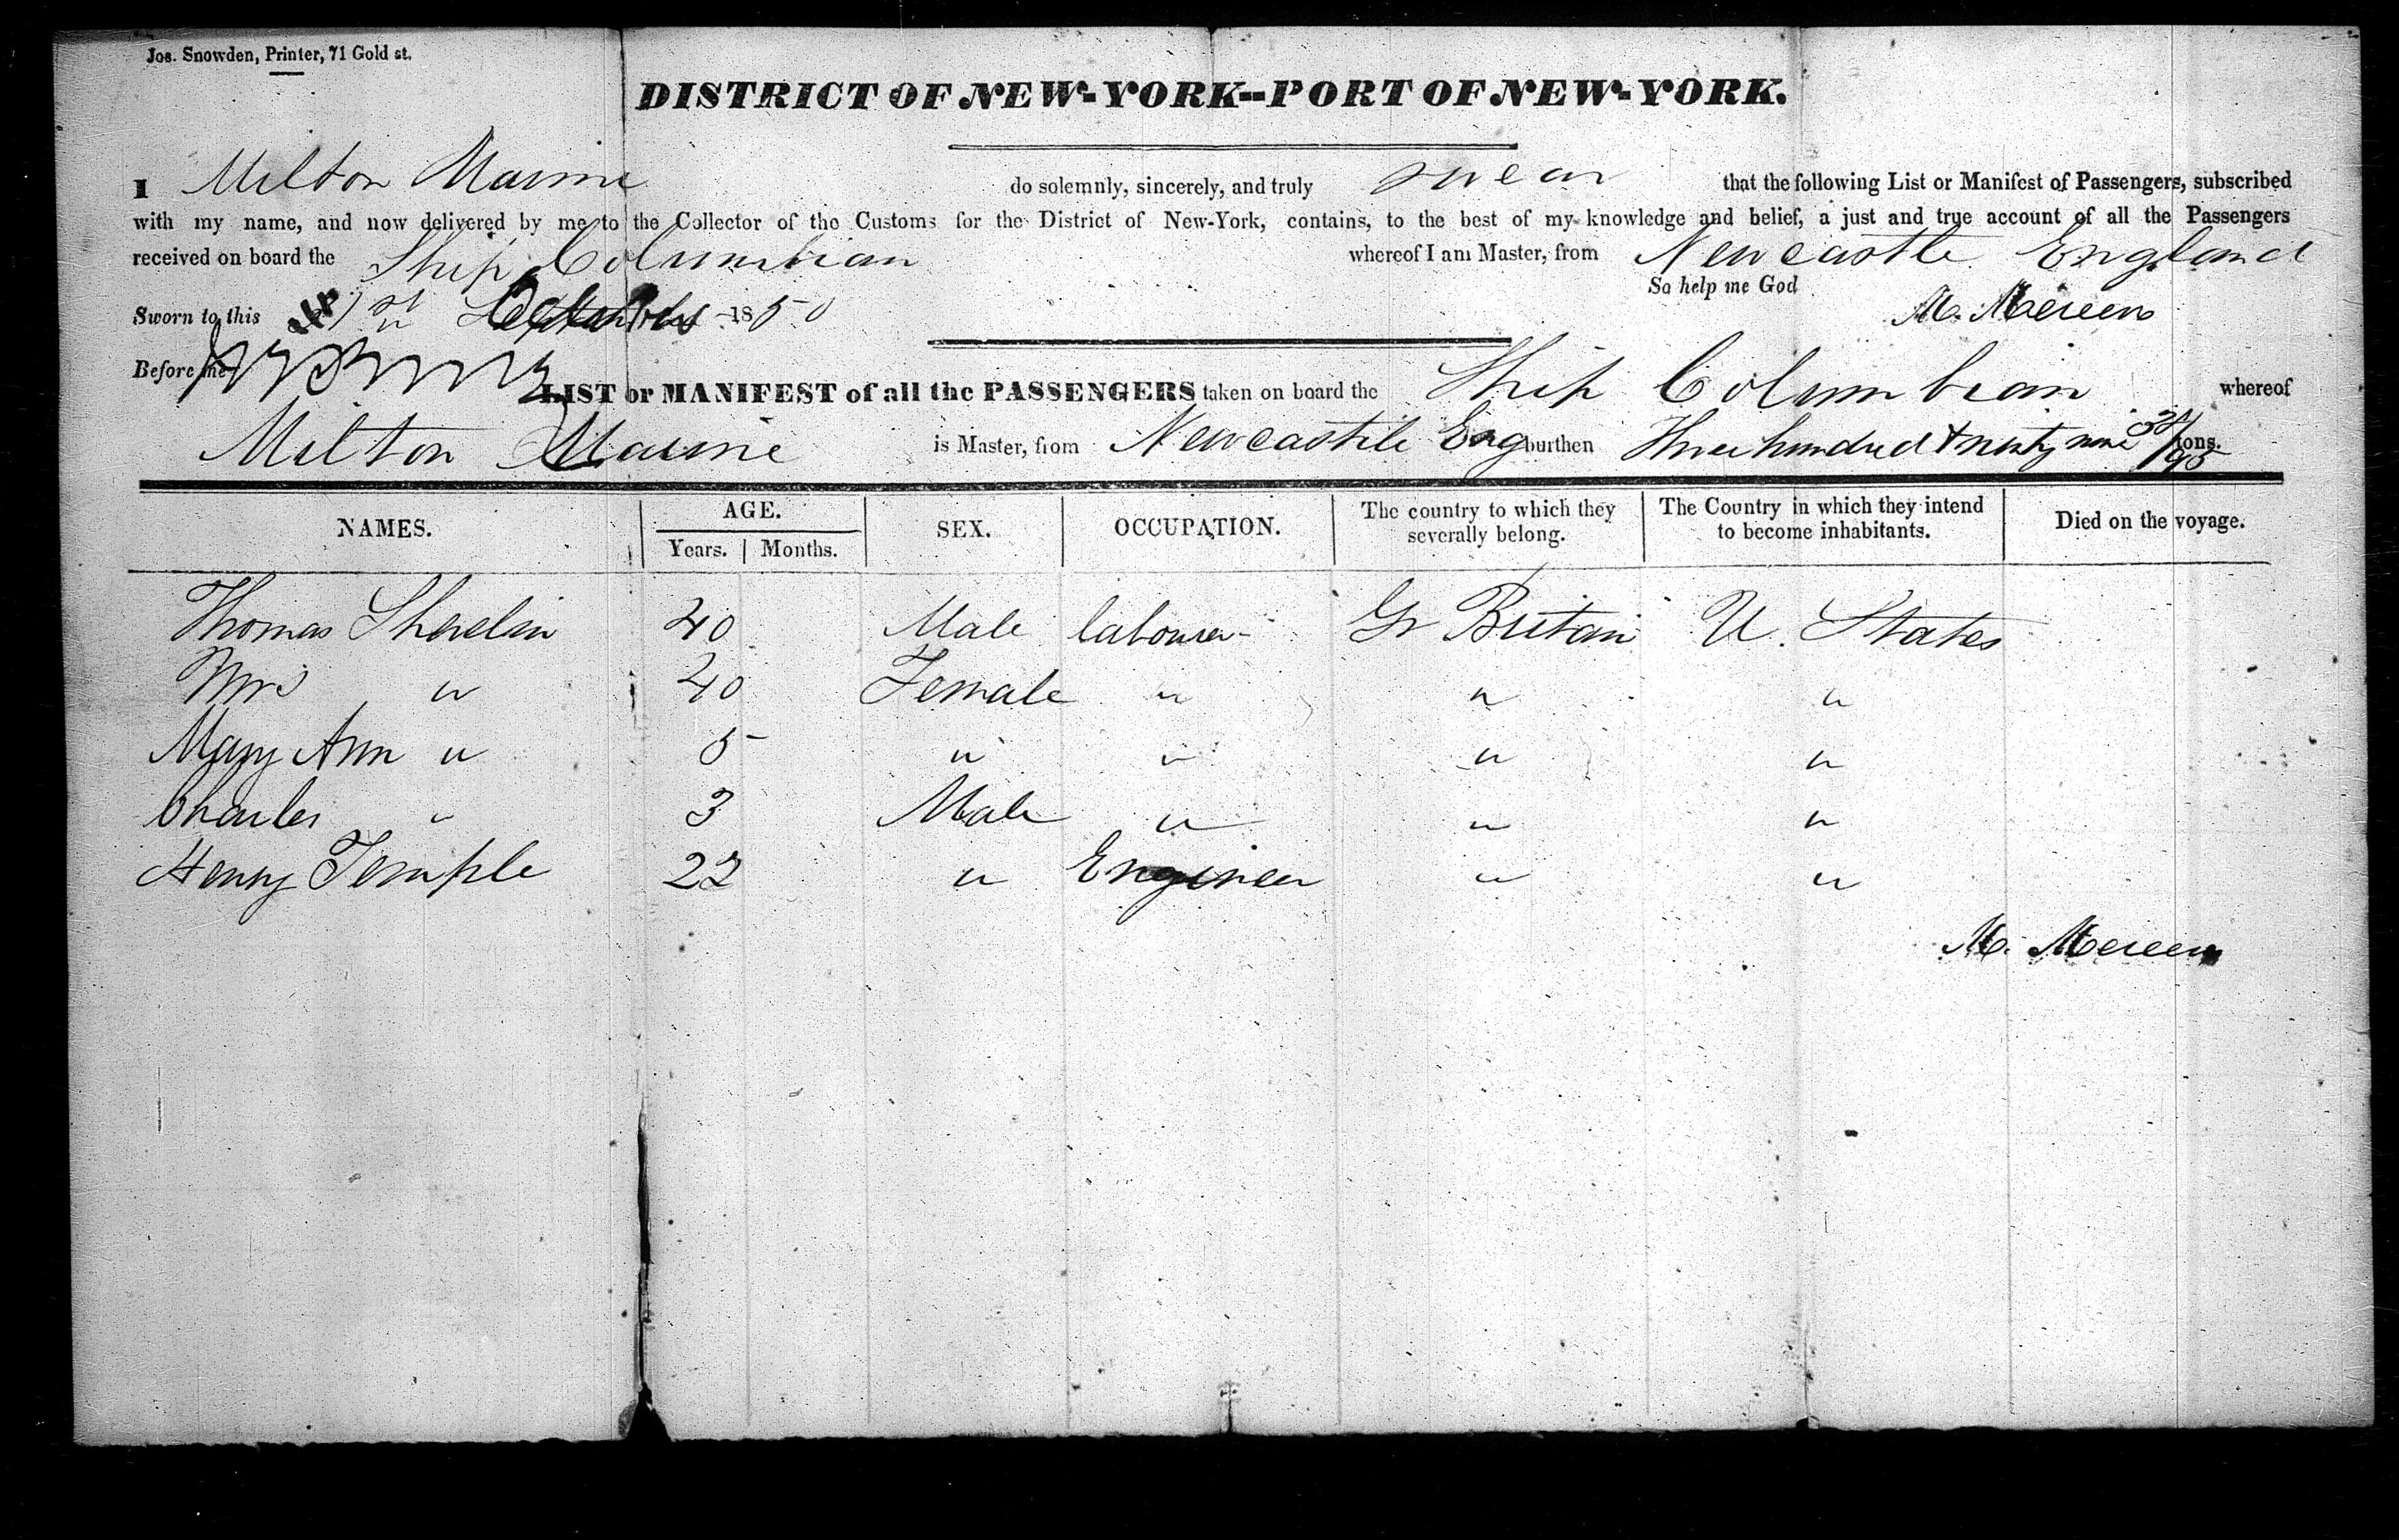 Jos. Snowden, Printer, 71 Gold st.
DISTRICT OF NEW-YORK--PORT OF NEW-YORK.
I Milton do solemnly, sincerely, and truly swear that the following List or Manifest of Passengers, subscribed
with my name, and now delivered by me to the Collector of the Customs for the District of New-York, contains, to the best of my knowledge and belief, a just and true account of all the Passengers
received on board the Ship Columbian whereof I am Master, from Newcastle England
So help me God
Sworn to this 1st 1850 M.
Before me
LIST or MANIFEST of all the PASSENGERS taken on board the Ship Columbian whereof
Milton is Master, from Newcastle Eng burthen Three hundred & ninty nine /95 tons.
NAMES. AGE. SEX. OCCUPATION. The country to which they severally belong. The Country in which they intend to become inhabitants. Died on the voyage.
Years. Months.
Thomas 40 Male labourer Gr Britain U. States
Mrs " 40 Female " " "
Mary Ann " 5 " " " "
Charles " 3 Male " " "
Henry Temple 22 " Engineer " "
M.